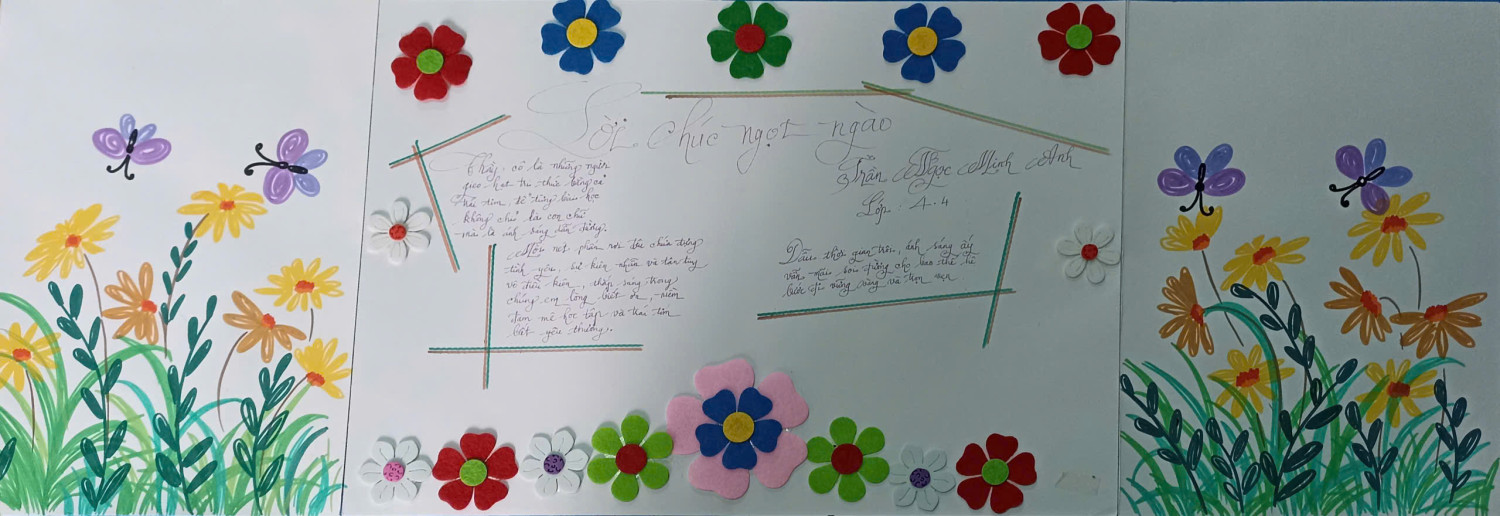 Lời chúc ngọt ngào
Trần Ngọc Minh Anh
Lớp : 4.4
Thầy, cô là những người
gieo hạt tri thức bằng cả
trái tim, để từng bài học
không chỉ là con chữ
mà là ánh sáng dẫn đường.
Mỗi nét phấn rơi đều chứa đựng
tình yêu, sự kiên nhẫn và tận tụy
vô điều kiện, thắp sáng trong
chúng em lòng biết ơn, niềm
đam mê học tập và trái tim
biết yêu thương.
Dẫu thời gian trôi, ánh sáng ấy
vẫn mãi soi đường cho bao thế hệ
bước đi vững vàng và trọn vẹn